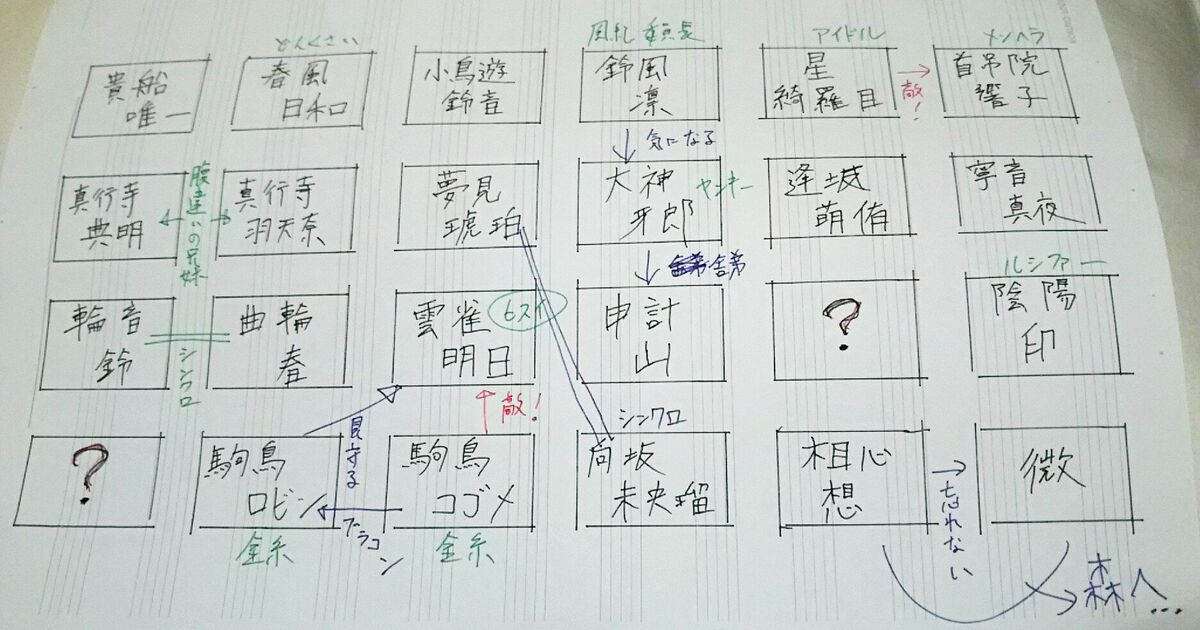 どんくさい
風紀委員長
アイドル
メンヘラ
貴船
唯一
春風
日和
小鳥遊
鈴音
鈴風
凛
星
綺羅目
→
敵!
首吊院
響子
気になる
真行寺
典明
腹違いの兄妹
真行寺
羽天奈
夢見
琥珀
大神
牙郎
ヤンキー
逢城
萌侑
寧音
真夜
舎弟
ルシファー
輪音
鈴
シンクロ
曲輪
春
雲雀
明日
ヒスイ
申計
山
?
陰陽
印
見守る
敵!
シンクロ
?
駒鳥
ロビン
金糸
ブラコン
駒鳥
コゴメ
金糸
向坂
未央瑠
相心
想
→
忘れない
微
森へ...